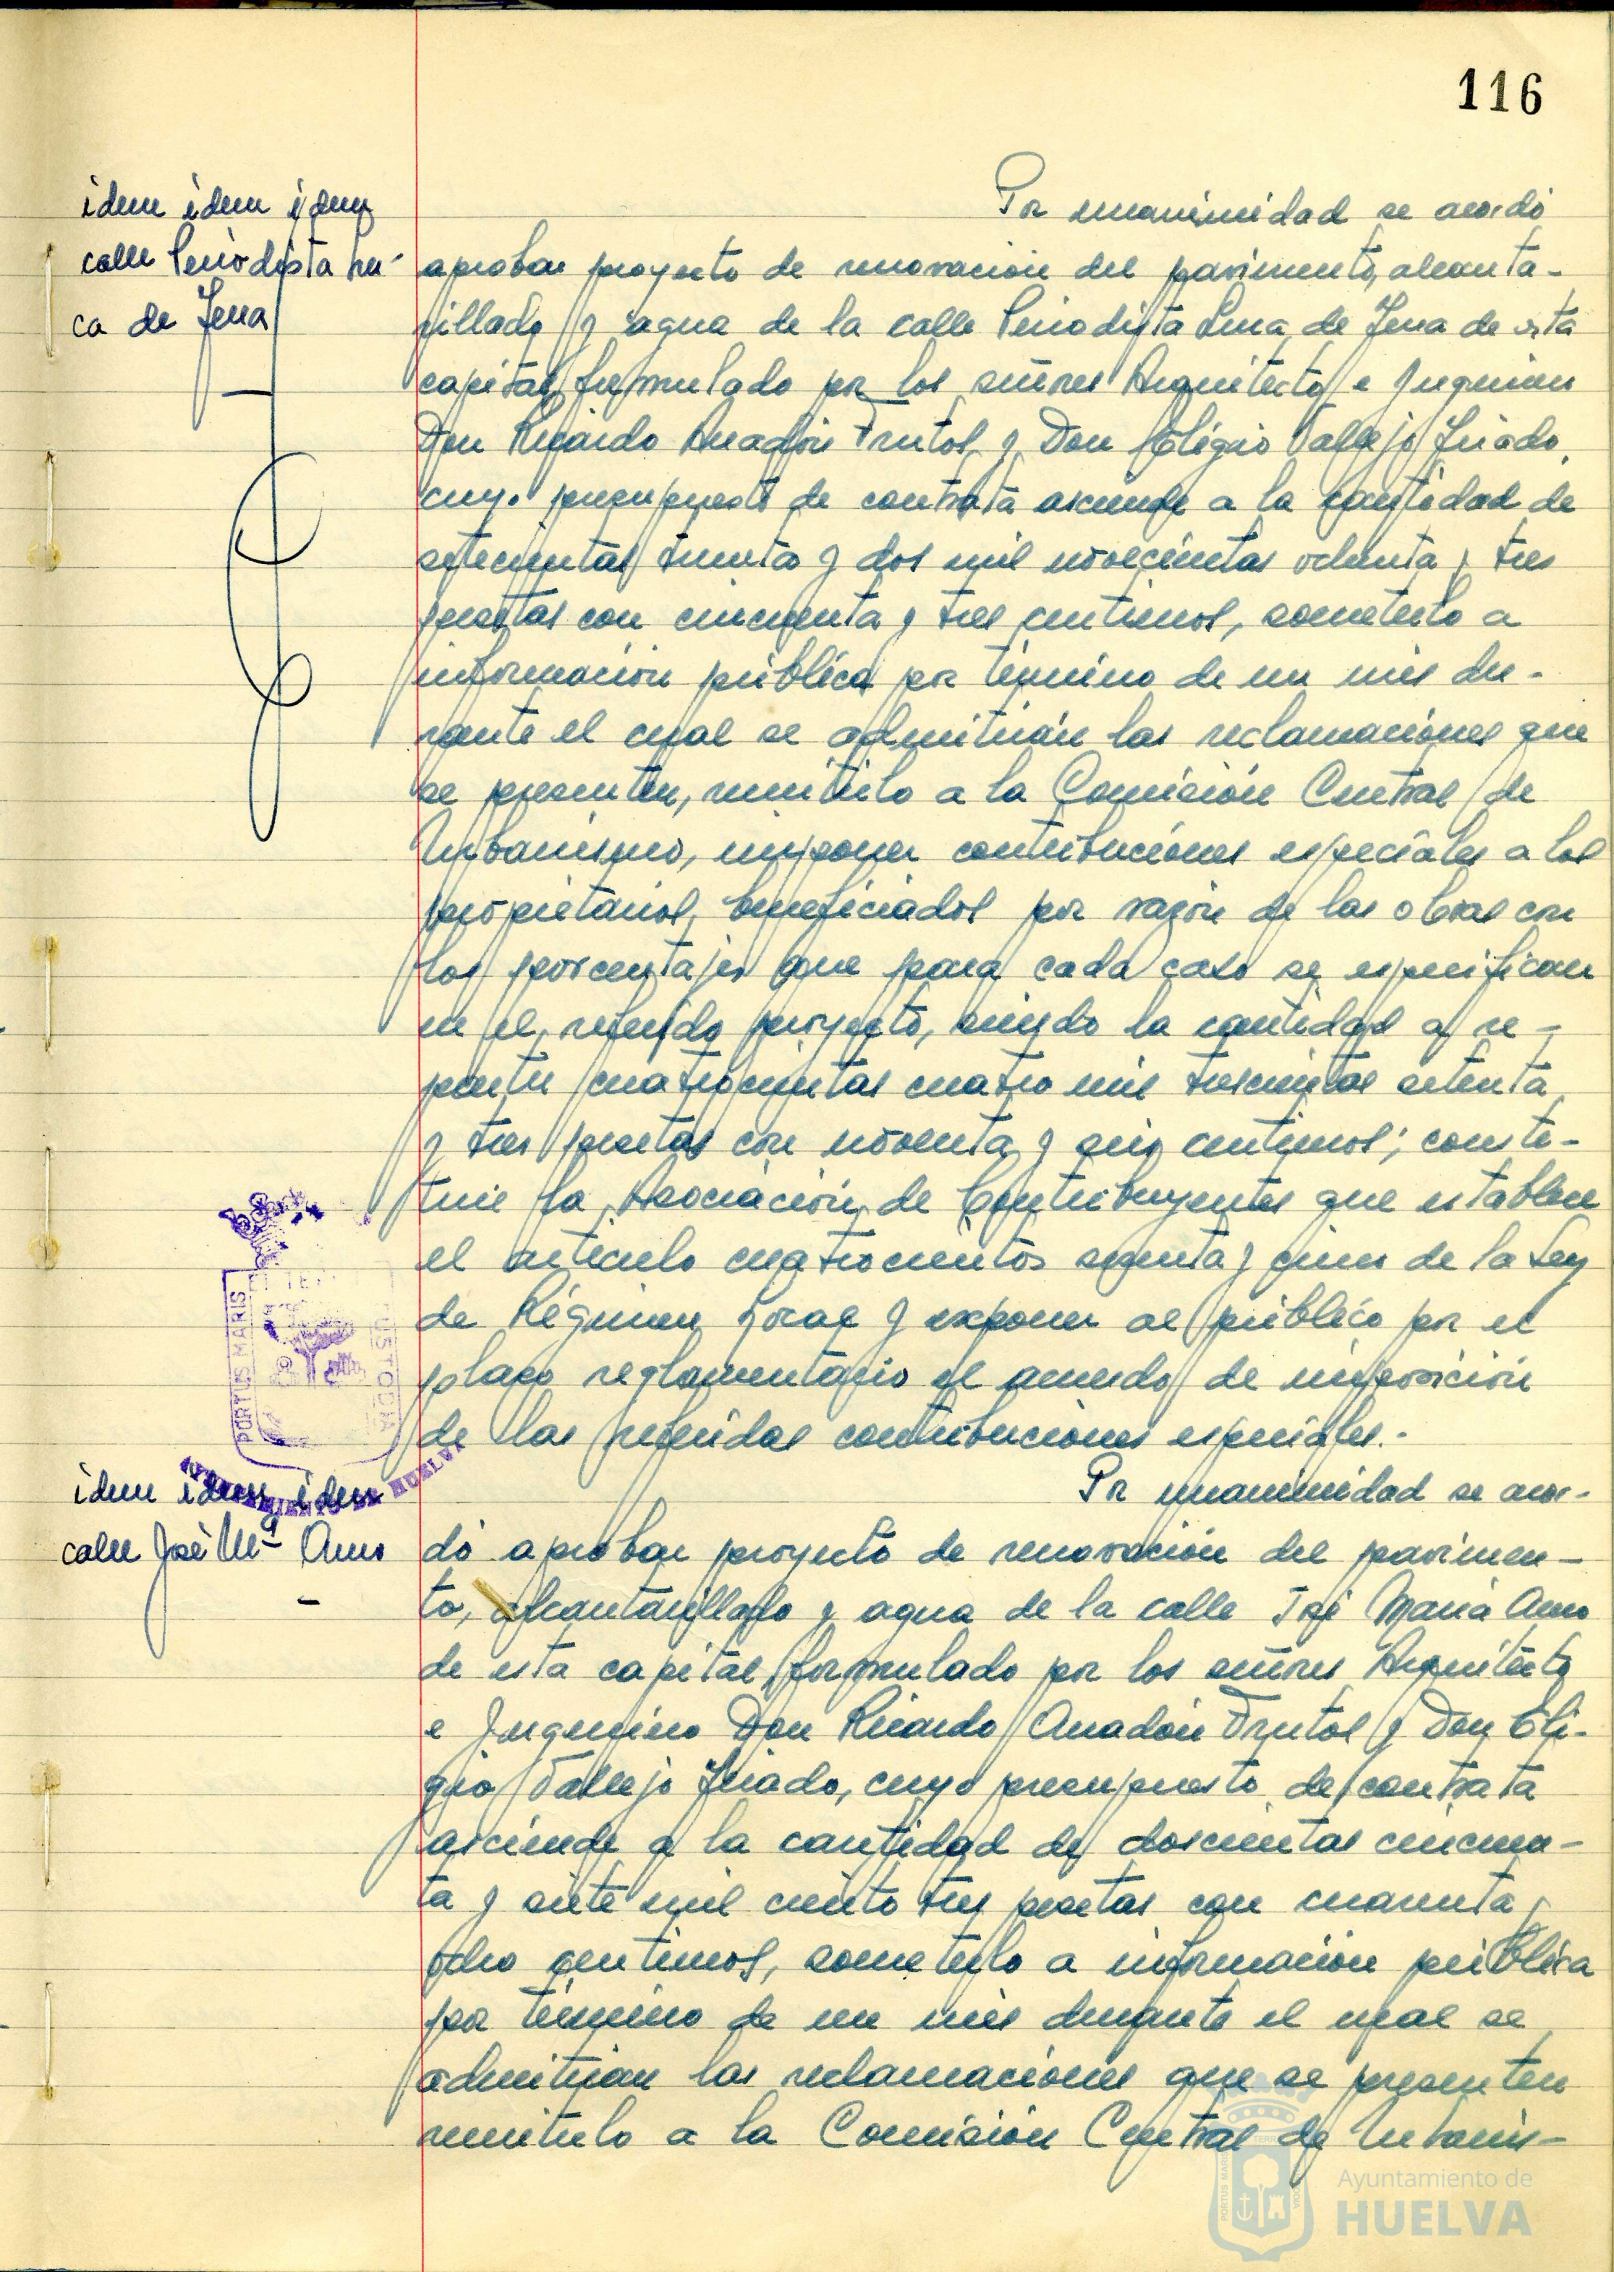 116
idem idem idem
calle Periodista Lu-
ca de Tena
Por unanimidad se acordó
aprobar proyecto de renovación del pavimento, alcanta-
rillado y agua de la calle Periodista Luca de Tena de esta
capital, formulado por los señores Arquitecto e Ingeniero
Don Ricardo Anadón Frutos y Don Eligio Vallejo Triado,
cuyo presupuesto de contrata asciende a la cantidad de
setecientas treinta y dos mil novecientas ochenta y tres
pesetas con cincuenta y tres centimos, someterlo a
información pública por término de un mes du-
rante el cual se admitirán las reclamaciones que
se presenten, remitirlo a la Comisión Central de
Urbanismo, imponer contribuciones especiales a los
propietarios beneficiados por razón de las obras con
los porcentajes que para cada caso se especifican
en el referido proyecto, siendo la cantidad a re-
partir cuatrocientas cuatro mil trescientas setenta
y tres pesetas con noventa y seis centimos; consti-
tuir la Asociación de Contribuyentes que establece
el articulo cuatrocientos sesenta y cinco de la Ley
de Régimen Local y exponer al público por el
plazo reglamentario el acuerdo de imposición
de las referidas contribuciones especiales.-
PORTUS MARIS ET TERRAE CUSTODIA
AYUNTAMIENTO DE HUELVA
idem idem idem
calle José Mª Amo
Por unanimidad se acor-
dó aprobar proyecto de renovación del pavimen-
to, alcantarillado y agua de la calle José María Amo
de esta capital, formulado por los señores Arquitecto
e Ingeniero Don Ricardo Anadón Frutos y Don Eli-
gio Vallejo Triado, cuyo presupuesto de contrata
asciende a la cantidad de doscientas cincuen-
ta y siete mil ciento tres pesetas con cuarenta y
ocho centimos, someterlo a información pública
por término de un mes durante el cual se
admitirian las reclamaciones que se presenten
remitirlo a la Comisión Central de Urbanis-
Ayuntamiento de
HUELVA